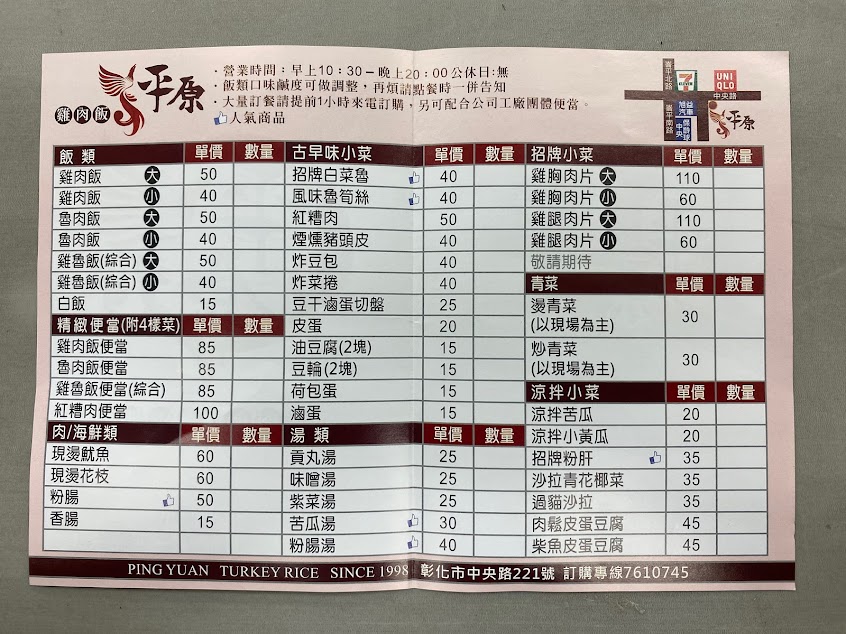 雞肉飯 平原
・營業時間：早上10：30－晚上20：00公休日:無
・飯類口味鹹度可做調整，再煩請點餐時一併告知
・大量訂餐請提前1小時來電訂購，另可配合公司工廠團體便當。
人氣商品
7 ELEVEN
UNI QLO
中央路
金平北路
金平南路
旭益汽車
中央
平原
飯 類 單價 數量
雞肉飯 大 50
雞肉飯 小 40
魯肉飯 大 50
魯肉飯 小 40
雞魯飯(綜合) 大 50
雞魯飯(綜合) 小 40
白飯 15
精緻便當(附4樣菜) 單價 數量
雞肉飯便當 85
魯肉飯便當 85
雞魯飯便當(綜合) 85
紅糟肉便當 100
肉/海鮮類 單價 數量
現燙魷魚 60
現燙花枝 60
粉腸 50
香腸 15
古早味小菜 單價 數量
招牌白菜魯 40
風味魯筍絲 40
紅糟肉 50
煙燻豬頭皮 40
炸豆包 40
炸菜捲 40
豆干滷蛋切盤 25
皮蛋 20
油豆腐(2塊) 15
豆輪(2塊) 15
荷包蛋 15
滷蛋 15
湯 類 單價 數量
貢丸湯 25
味噌湯 25
紫菜湯 25
苦瓜湯 30
粉腸湯 40
招牌小菜 單價 數量
雞胸肉片 大 110
雞胸肉片 小 60
雞腿肉片 大 110
雞腿肉片 小 60
敬請期待
青菜 單價 數量
燙青菜
(以現場為主) 30
炒青菜
(以現場為主) 30
涼拌小菜 單價 數量
涼拌苦瓜 20
涼拌小黃瓜 20
招牌粉肝 35
沙拉青花椰菜 35
過貓沙拉 35
肉鬆皮蛋豆腐 45
柴魚皮蛋豆腐 45
PING YUAN TURKEY RICE SINCE 1998 彰化市中央路221號 訂購專線7610745